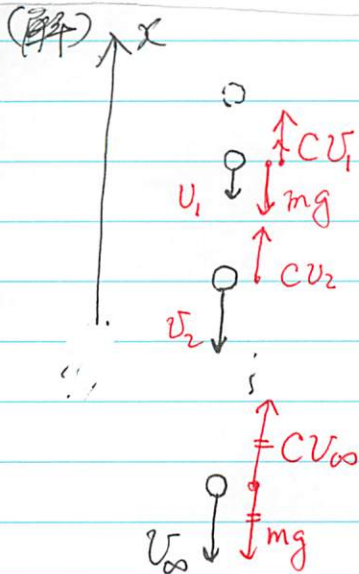 (解)
x
CU₁
U₁
mg
CU₂
U₂
CU∞
mg
U∞